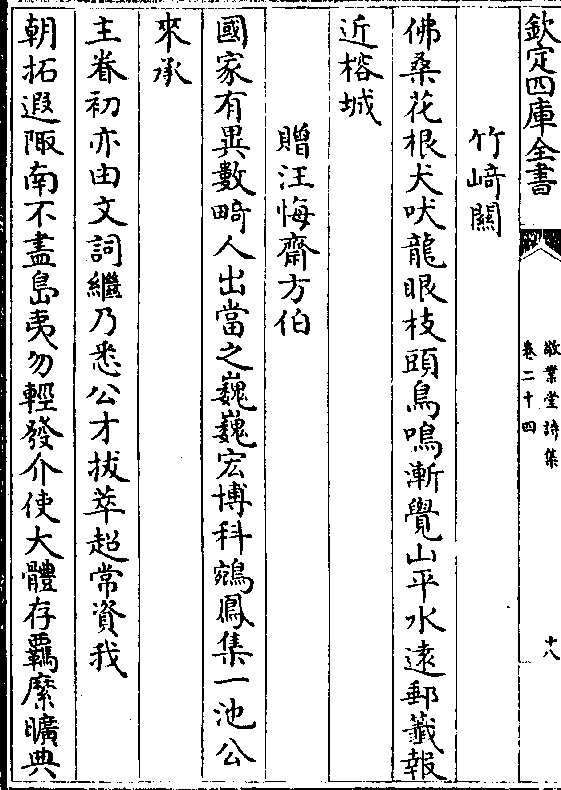 欽定四庫全書
敬業堂詩集
卷二十四
十八
竹﨑關
佛桑花根犬吠龍眼枝頭鳥鳴漸覺山平水遠郵籤報
近榕城
贈汪悔齋方伯
國家有異數畸人出當之巍巍宏博科鵷鳳集一池公
來承
主眷初亦由文詞繼乃悉公才拔萃超常資我
朝拓遐陬南不盡島夷勿輕發介使大體存羈縻曠典